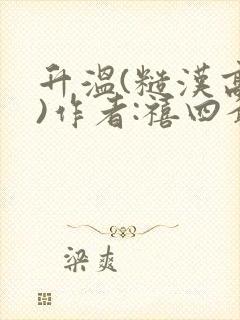 升温(糙汉高
)作者:禧四
梁爽